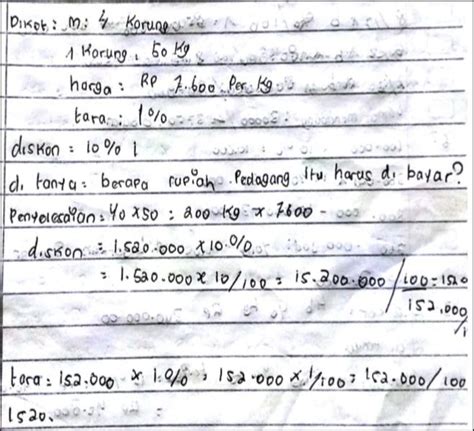 Diket : m : 4 Korung
1 Korung : 50 kg
harga : RP 7.600 Per kg
tara : 1%
diskon = 10% 1
di tanya = berapa rupiah Pedagang itu harus di bayar?
Penyelesaian = 40 x 50 = 200 kg x 7600 -
diskon = 1.520.000 x 10.%
= 1.520.000 x 10/100 = 15.200.000 / 100 = 1520
152.000
tara = 152.000 x 1.% = 152.000 x 1/100 = 152.000 / 100
1520.